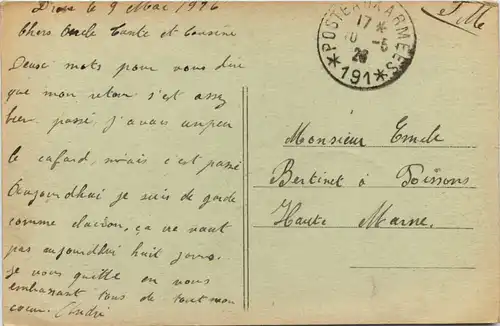 le 9 Mai 1926
Chers Oncle Tante et Cousine
Deux mots pour vous dire
que mon retour s'est assez
bien passé, j'avais un peu
le cafard, mais c'est passé
Aujourd'hui je suis de garde
comme clairon, ça ne vaut
pas aujourd'hui huit jours.
je vous quitte en vous
embrassant tous de tout mon
coeur. André
F.M.
POSTE AUX ARMEES
17 *
10 - 5
26
* 191 *
Monsieur Emile
Bertinet à Poissons
Haute Marne.